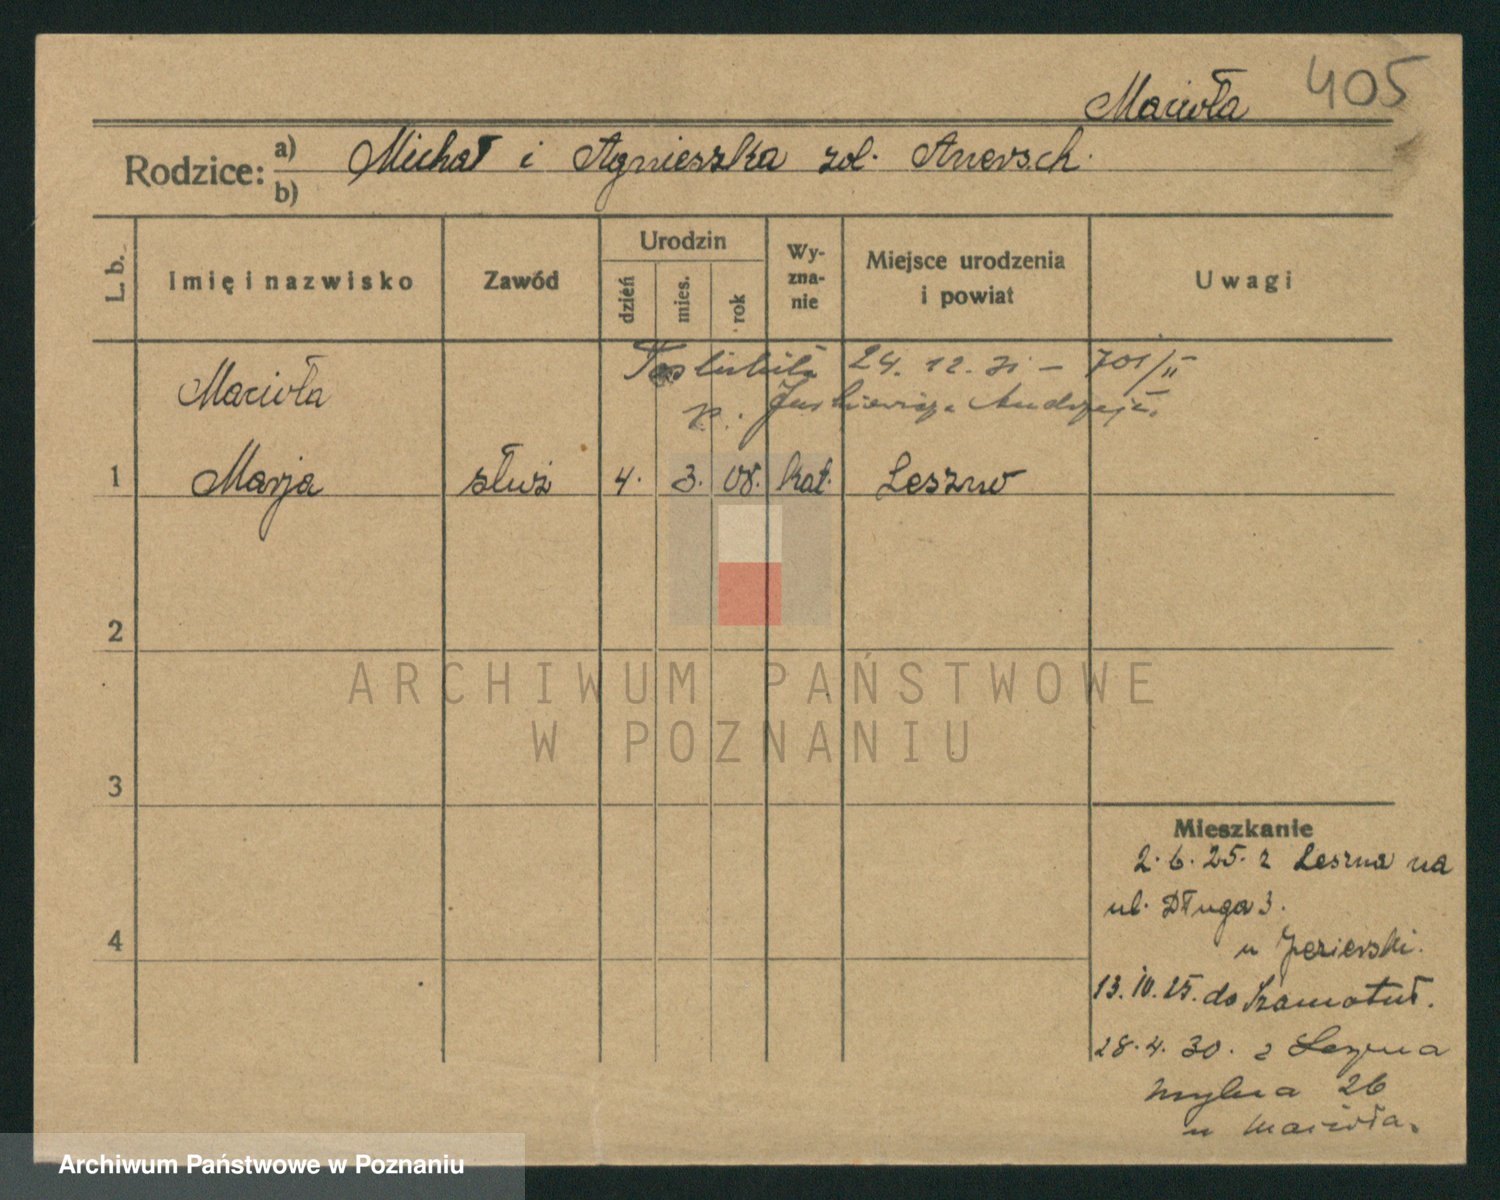 405
Macioła
Rodzice: a) Michał i Agnieszka zd. Anersch.
b)
L. b. Imię i nazwisko Zawód Urodzin dzień mies. rok Wyznanie Miejsce urodzenia i powiat Uwagi
Poślubiła 24. 12. 31 – 701/II
Macioła p. Juskiewicza Andrzeja.
1 Marja służ 4. 3. 08. kat. Leszno
2
ARCHIWUM PAŃSTWOWE
W POZNANIU
3
Mieszkanie
2. 6. 25. z Leszna na
ul. Długa 3.
u Jezierski.
4
13. 10. 25. do Szamotuł.
28. 4. 30. z Leszna
Mylna 26
u Macioła.
Archiwum Państwowe w Poznaniu